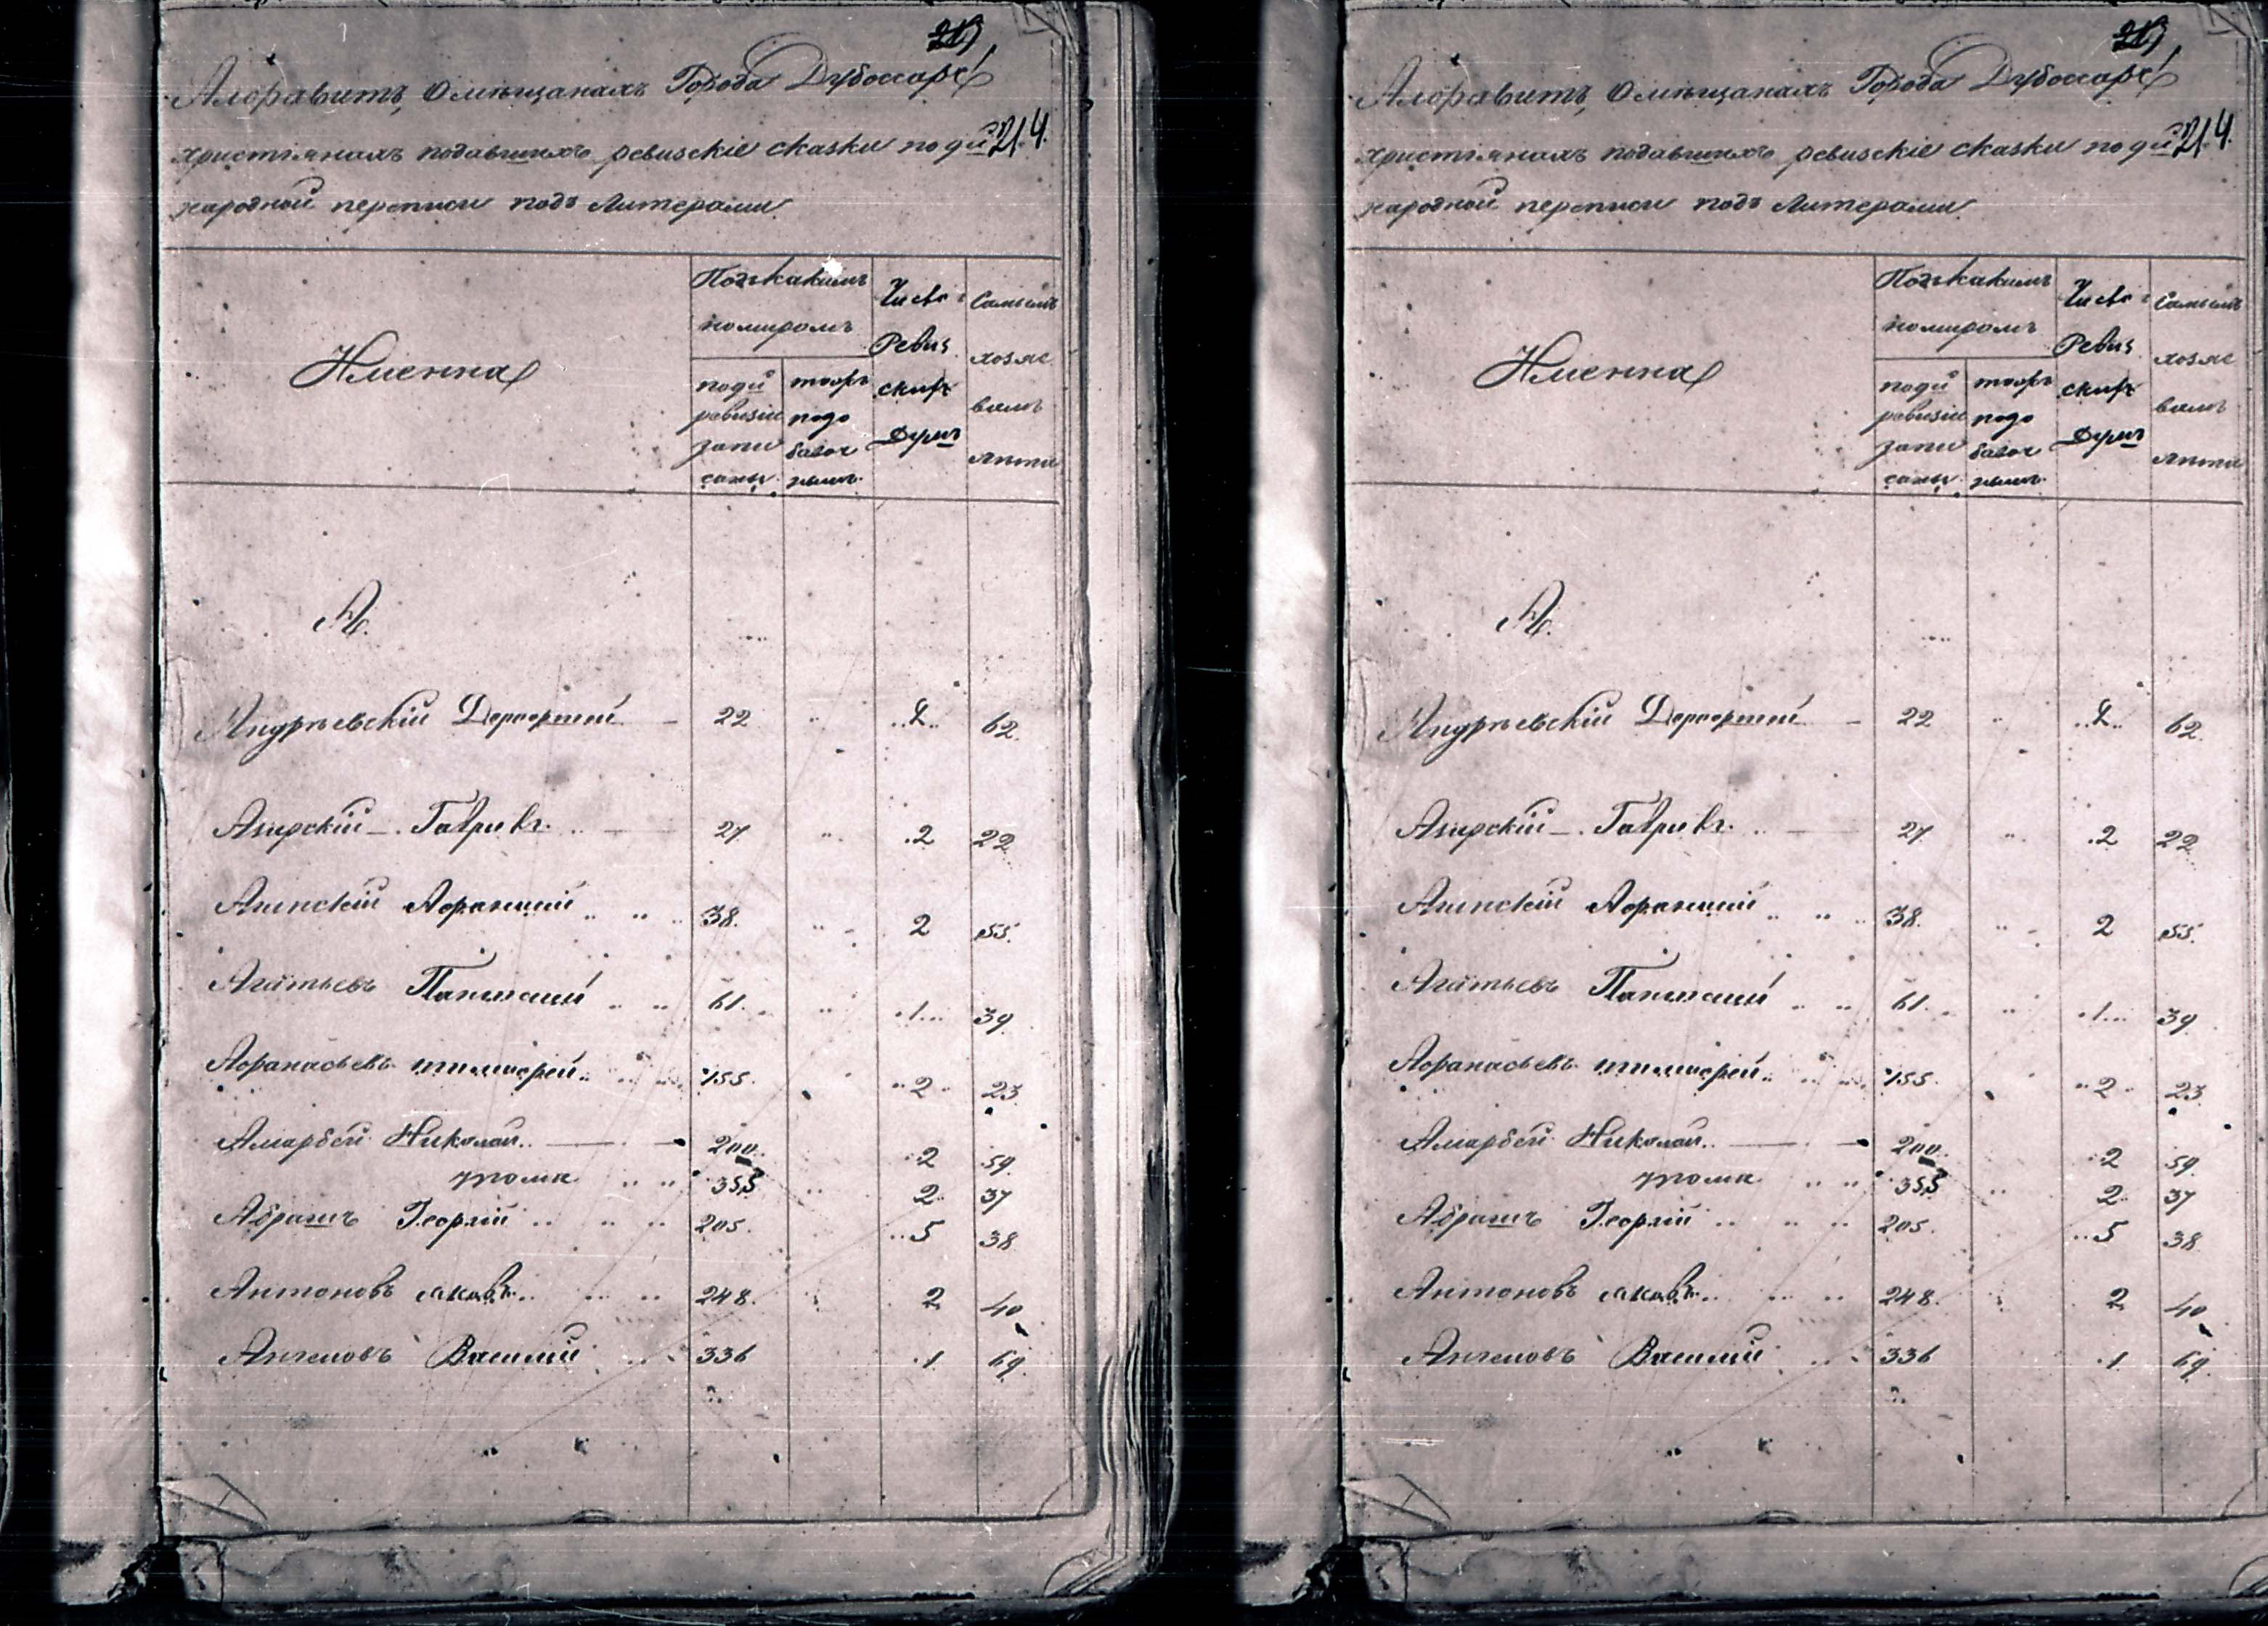 Алфавитъ, О мѣщанахъ Города Дубоссаръ
христіянахъ подавшихъ ревизскіе сказки по 8й 214.
народной переписи подъ Литерами
Имена
Подъ какимъ
номиромъ
по 8й
ревизіи
запи
саны.
подо
Число
Ревиз
скихъ
Душъ
Самымъ
хозяе
вамъ
лѣта
А.
Андріевскій Дорофтей 22 2 62.
Азарскій Гаврилъ. 27 2 22
Афанасій 38. 2 55.
Агатьевъ 61. 1 39
Афанасьевъ 155. 2 23
Амарбей Николай 200. 2 59.
355 2 37
Абрамъ Георгій 205. 5 38
Антоновъ Яковъ 248. 2 40
Ангеловъ Василий 336 1 69.
Алфавитъ, О мѣщанахъ Города Дубоссаръ
христіянахъ подавшихъ ревизскіе сказки по 8й 214.
народной переписи подъ Литерами
Имена
Подъ какимъ
номиромъ
по 8й
ревизіи
запи
саны.
подо
Число
Ревиз
скихъ
Душъ
Самымъ
хозяе
вамъ
лѣта
А.
Андріевскій Дорофтей 22 2 62.
Азарскій Гаврилъ. 27 2 22
Афанасій 38. 2 55.
Агатьевъ 61. 1 39
Афанасьевъ 155. 2 23
Амарбей Николай 200. 2 59.
355 2 37
Абрамъ Георгій 205. 5 38
Антоновъ Яковъ 248. 2 40
Ангеловъ Василий 336 1 69.